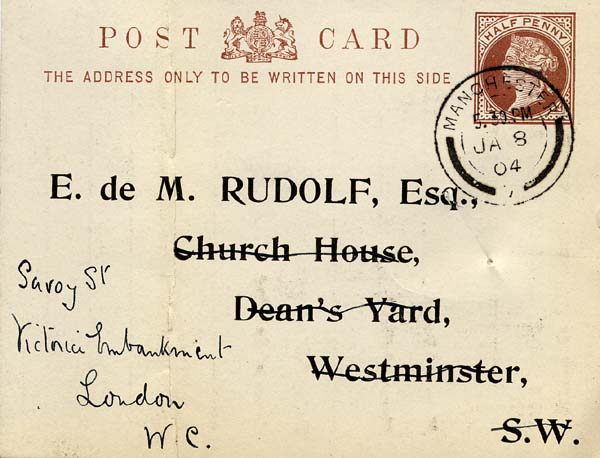 POST CARD
THE ADDRESS ONLY TO BE WRITTEN ON THIS SIDE
HALF PENNY
MANCHESTER
5.30 PM
JA 8
04
E. de M. RUDOLF, Esq.,
Church House,
Dean's Yard,
Westminster,
S.W.
Savoy St
Victoria Embankment
London
W.C.